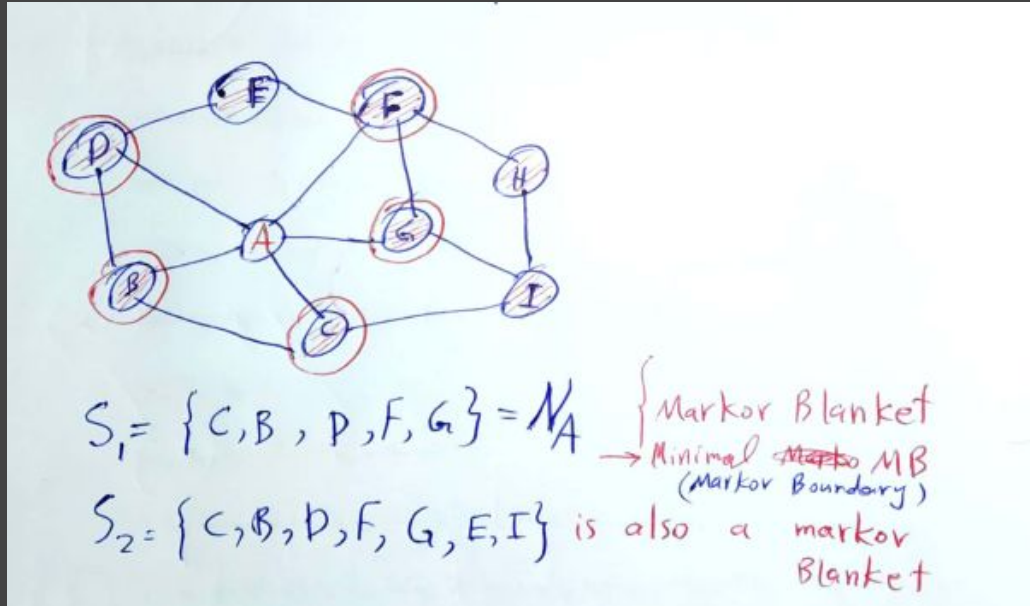 E
F
D
H
A
G
B
I
C
S₁= {C,B , D ,F, G} = N_A
{Markov Blanket
→ Minimal MB
(Markov Boundary)
S₂= {C,B,D,F, G,E,I} is also a markov
Blanket